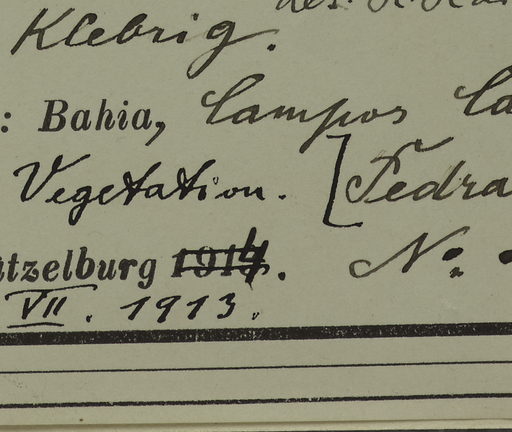 Klebrig.
: Bahia, Campos
Vegetation. [Pedra
tzelburg 1914. Nº
VII. 1913.